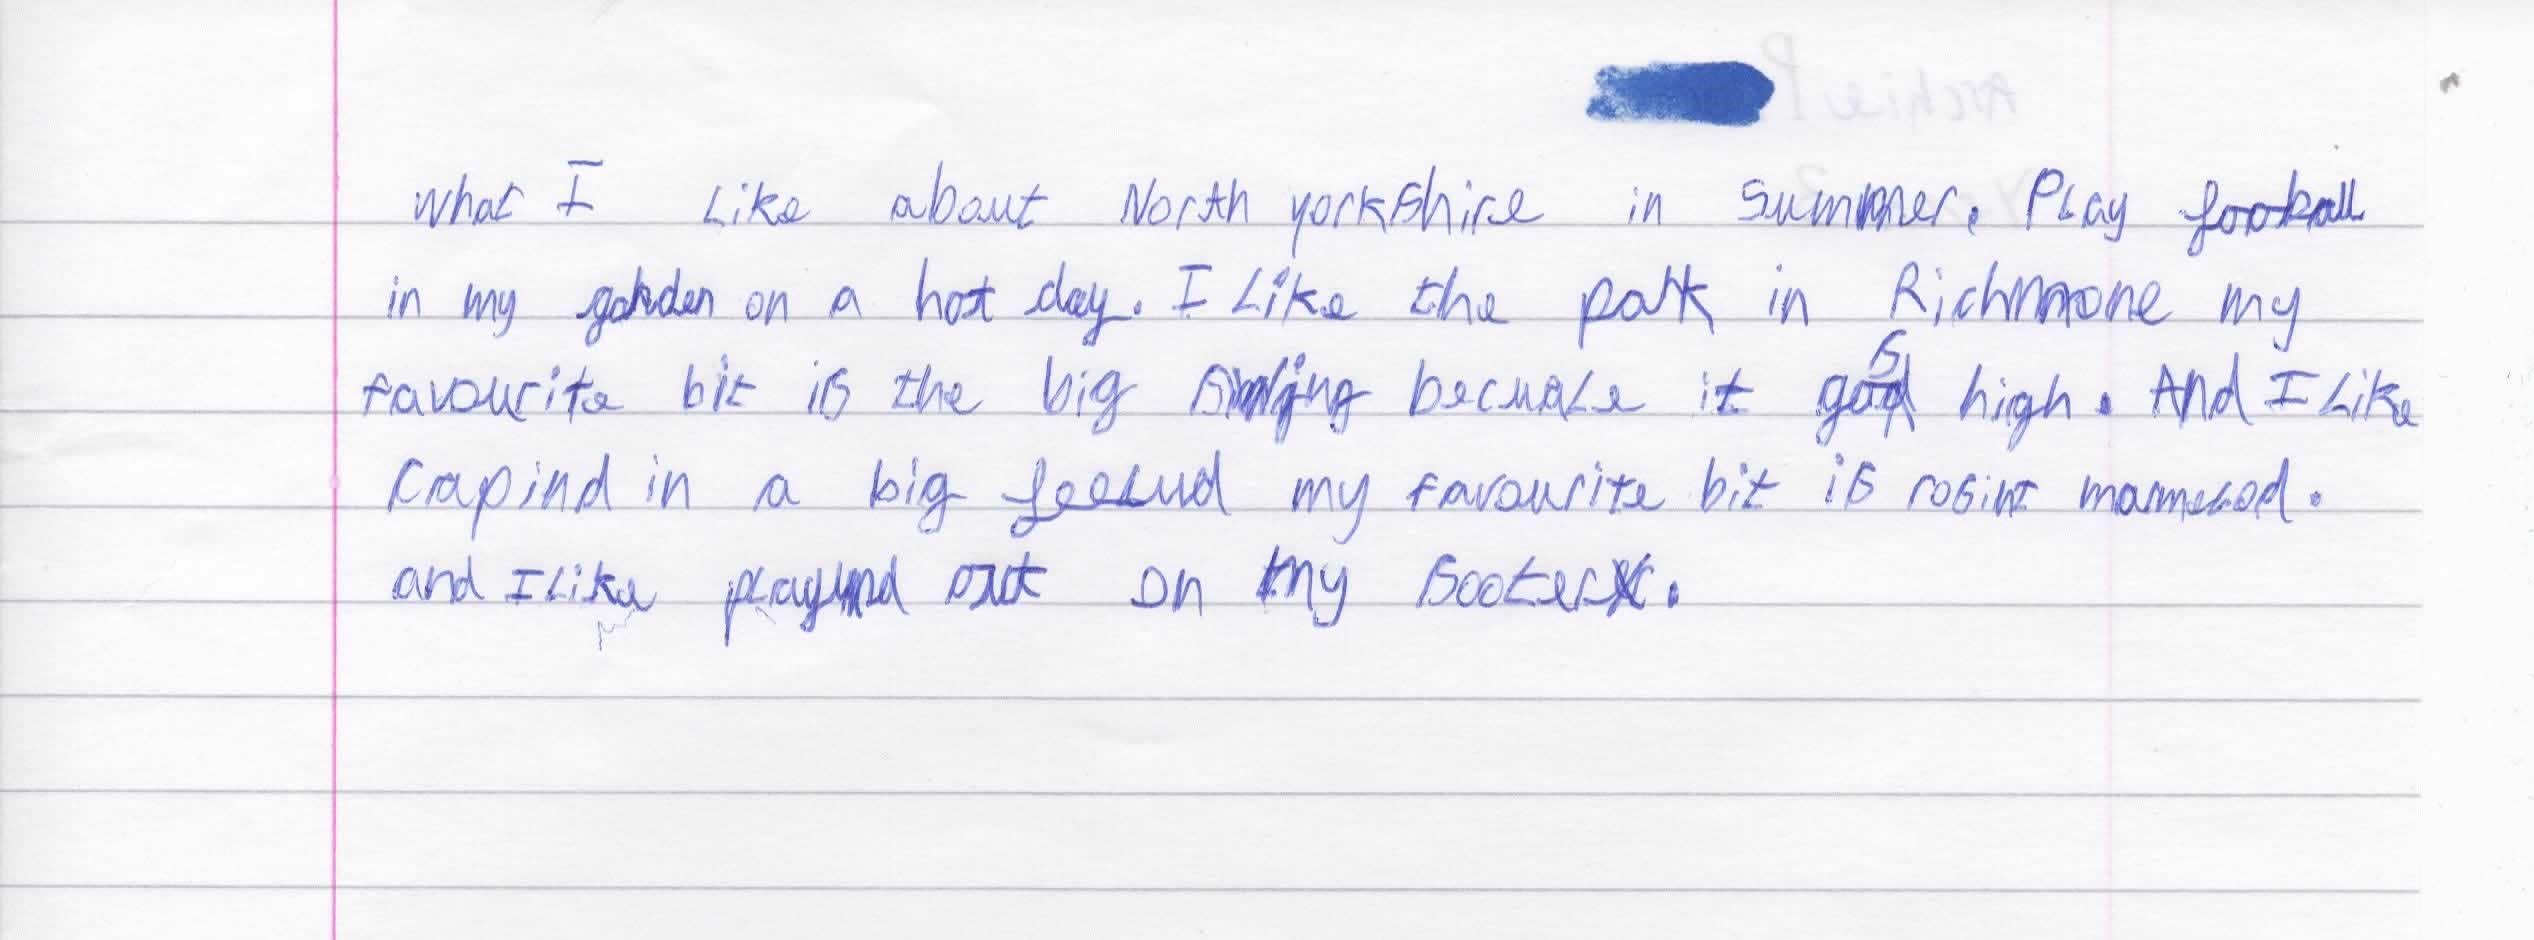 What I Like about North yorkshire in Summer. Play football
in my garden on a hot day. I Like the park in Richmone my
favourite bit is the big swing it gos high. And I Like
Capind in a big feelud my favourite bit is rosint mamelod.
and I Like playind out on my Sooter.